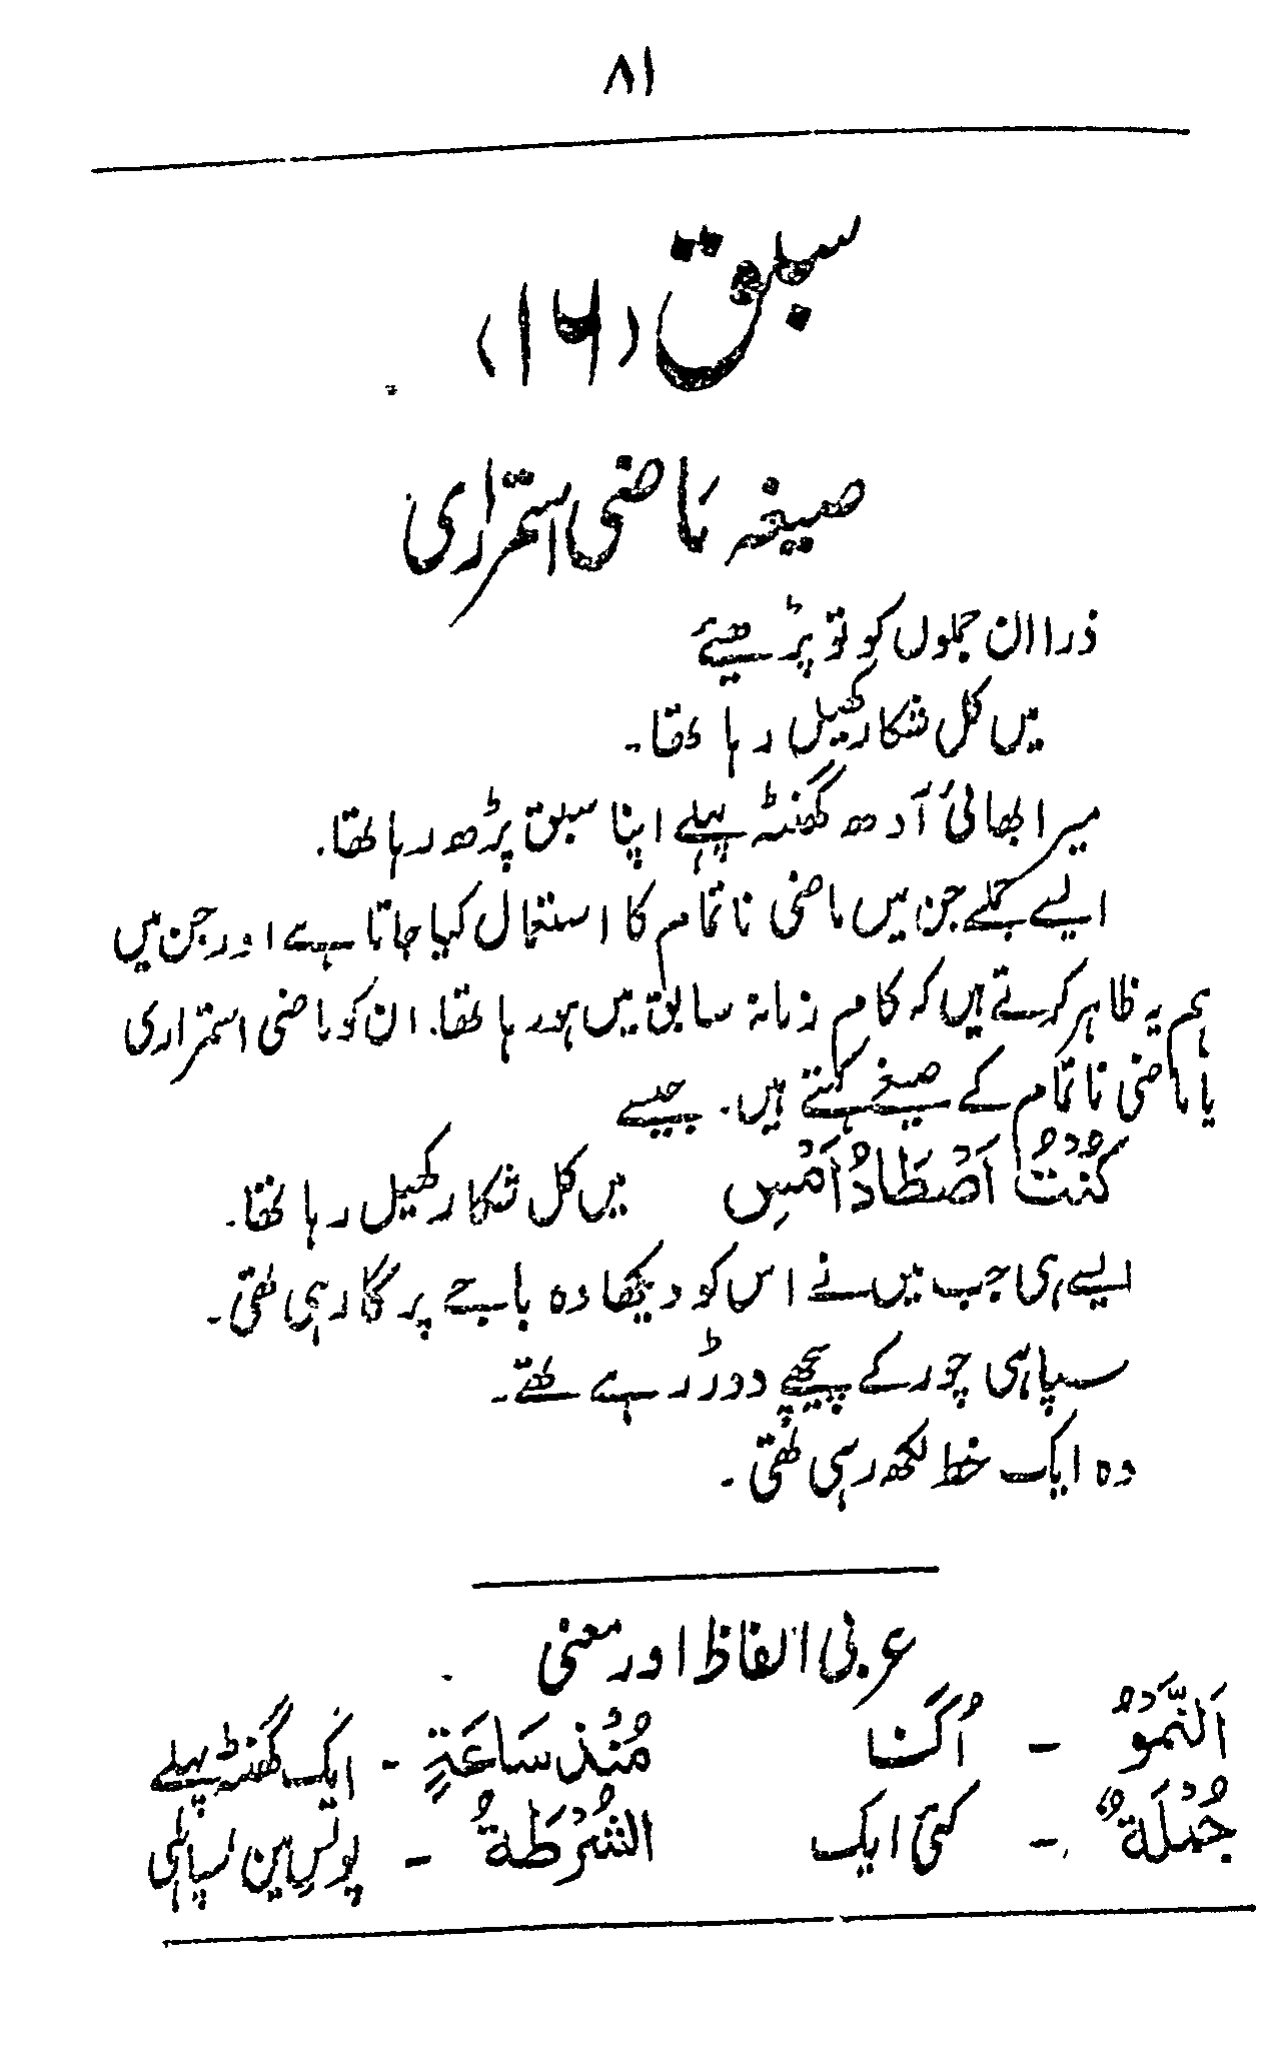 ۸۱
سبق (۱۶)
صیغہ ماضی استمراری
ذرا ان جملوں کو تو پڑھیئے
میں کل شکار کھیل رہا تھا۔
میرا بھائی آدھ گھنٹہ پہلے اپنا سبق پڑھ رہا تھا۔
ایسے جملے جن میں ماضی ناتمام کا استعمال کیا جاتا ہے اور جن میں
ہم یہ ظاہر کرتے ہیں کہ کام زمانہ سابق میں ہو رہا تھا۔ ان کو ماضی استمراری
یا ماضی ناتمام کے صیغے کہتے ہیں۔ جیسے
کُنْتُ اَصْطَادُ اَمْسِ میں کل شکار کھیل رہا تھا۔
ایسے ہی جب میں نے اس کو دیکھا وہ باجے پر گا رہی تھی۔
سپاہی چور کے پیچھے دوڑ رہے تھے۔
وہ ایک خط لکھ رہی تھی۔
عربی الفاظ اور معنی
اَلنَّمَوُّ - اُگنا مُنْذُ سَاعَةٍ - ایک گھنٹہ پہلے
جُمْلَةٌ - کئی ایک الشُرْطَةُ - پولس مین سپاہی